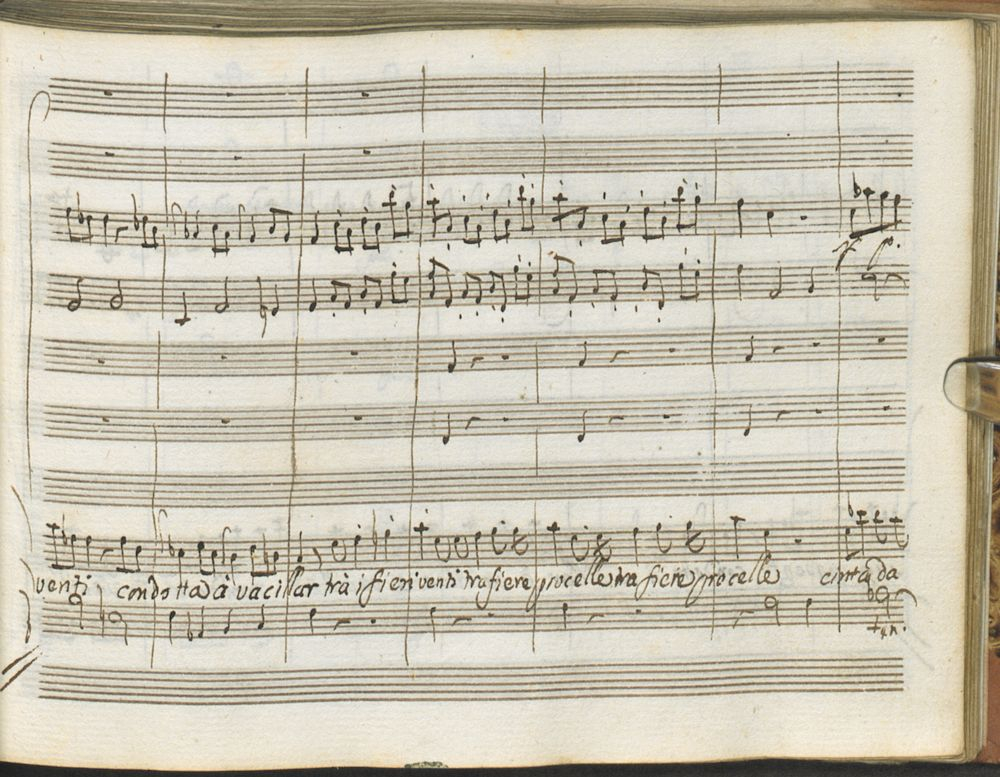 f p.
venti condotta à vacillar trà i fieri venti tra fiere procelle tra fiere procelle cinta da
ten.